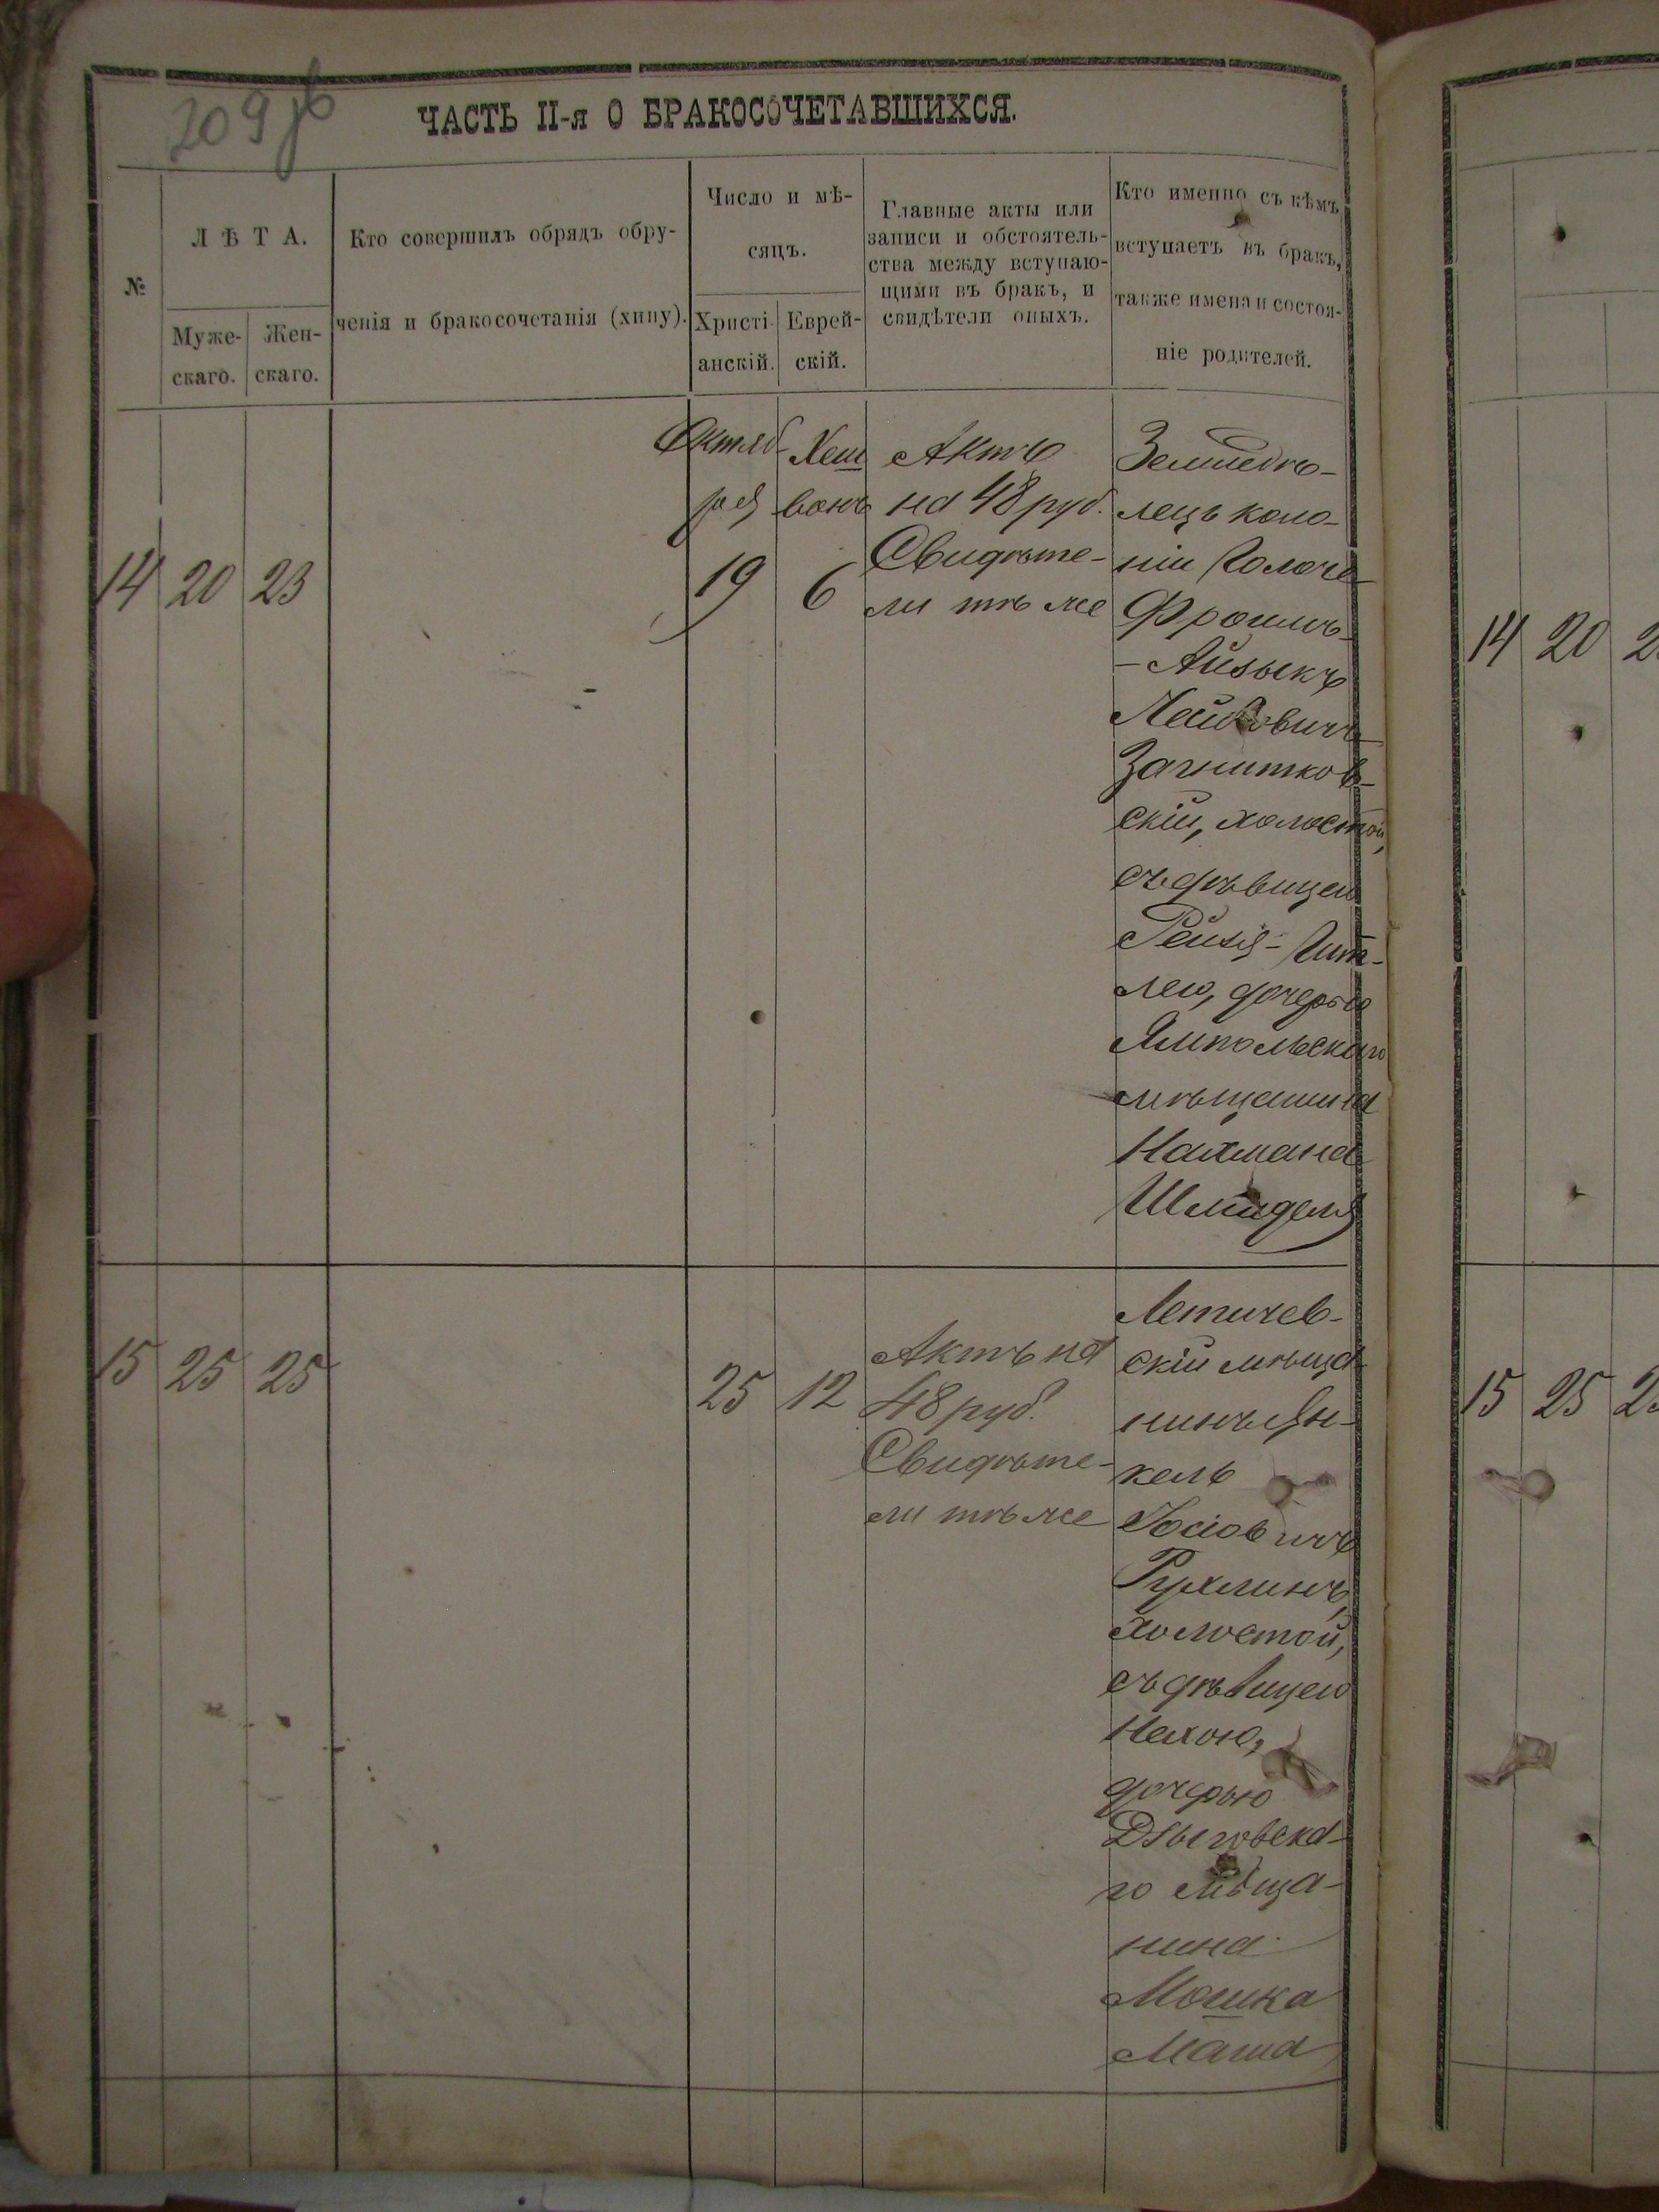 209 об
ЧАСТЬ II-я О БРАКОСОЧЕТАВШИХСЯ.
№
ЛѢТА.
Муже-
скаго.
Жен-
скаго.
Кто совершилъ обрядъ обру-
ченія и бракосочетанія (хипу).
Число и мѣ-
сяцъ.
Христі-
анскій.
Еврей-
скій.
Главные акты или
записи и обстоятель-
ства между вступаю-
щими въ бракъ, и
свидѣтели оныхъ.
Кто именно съ кѣмъ
вступаетъ въ бракъ,
также имена и состоя-
ніе родителей.
14 20 23
Октяб-
ря
19
Хеш
вонъ
6
Актъ
на 48 руб.
Свидѣте-
ли тѣ же
Земледѣ-
лецъ коло-
ніи
Фроимъ-
-Айзыкъ
Лейбовичъ
Загнитков-
скій, холостой,
съ дѣвицею
Рейзя-Гит-
лею, дочерью
Ямпольскаго
мѣщанина
Нахмана
Шмиделя
15 25 25
25 12
Актъ на
48 руб.
Свидѣте-
ли тѣ же
Летичев-
скій мѣща-
нинъ Ян-
кель
Іосіовичъ
Рухлинъ,
холостой,
съ дѣвицею
Нехою,
дочерью
Дзыговска-
го мѣща-
нина
Мошка
14 20 2
15 25 2